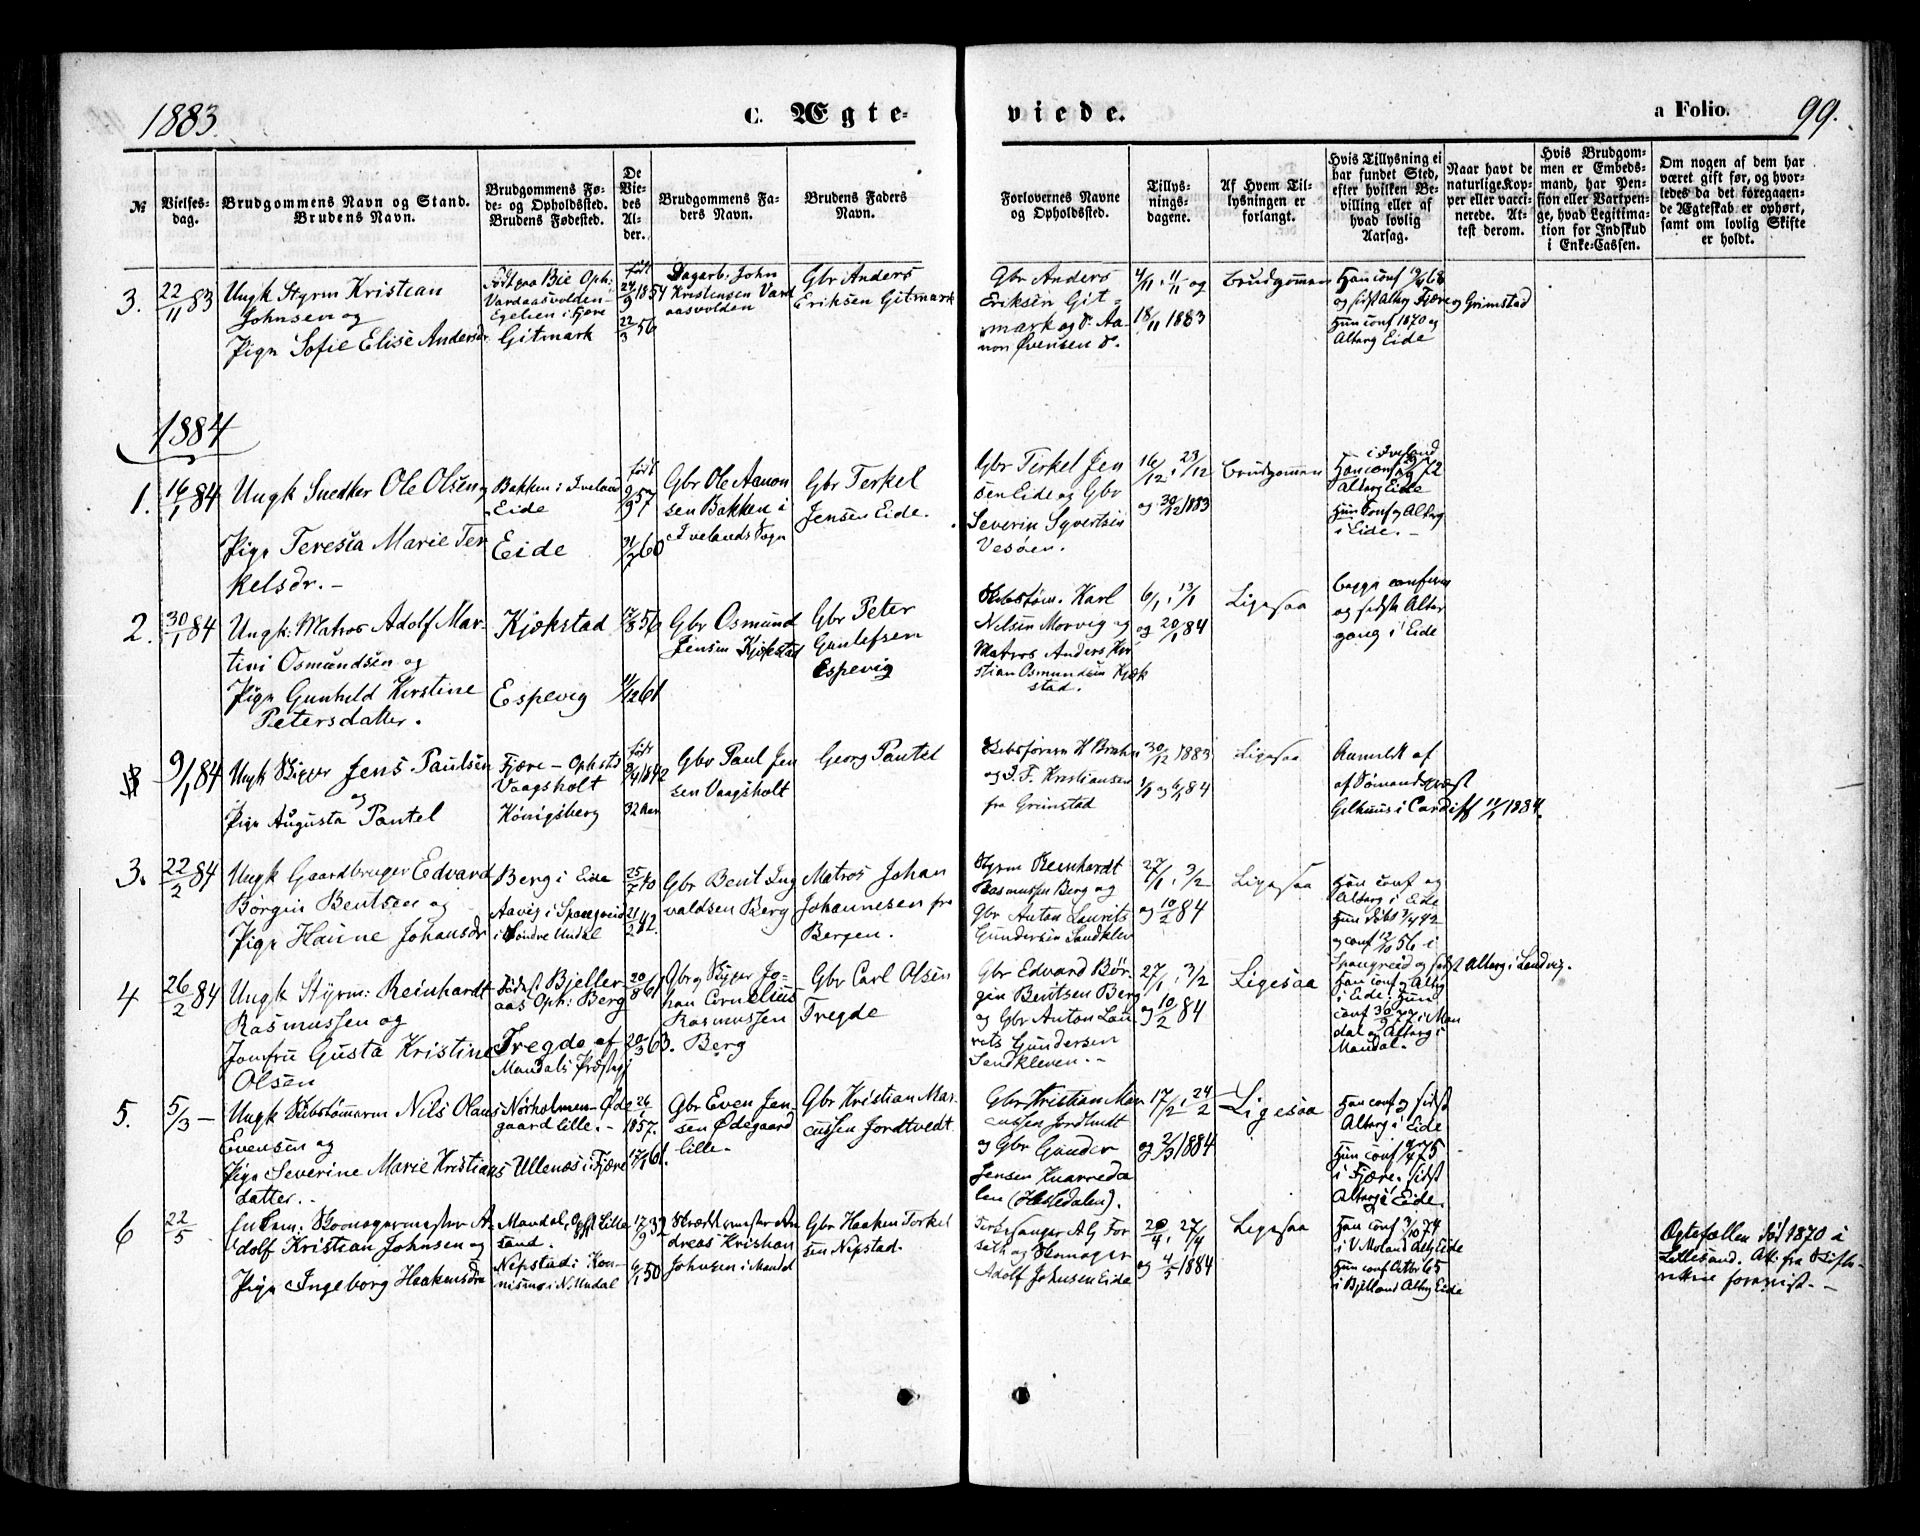 1883.
C. Ægte-
viede.
a Folio.
99.
№
Vielses-
dag.
Brudgommens Navn og Stand.
Brudens Navn.
Brudgommens Fø-
de- og Opholdssted.
Brudens Fødested.
De
Vie-
des
Al-
der.
Brudgommens Fa-
ders Navn.
Brudens Faders
Navn.
Forlovernes Navne
og Opholdssted.
Tillys-
nings-
dagene.
Af Hvem Til-
lysningen er
forlangt.
Hvis Tillysning ei
har fundet Sted,
efter hvilken Be-
villing eller af
hvad lovlig
Aarsag.
Naar havt de
naturlige Kop-
per eller vacci-
nerede. At-
test derom.
Hvis Brudgom-
men er Embeds-
mand, har Pen-
sion eller Vartpen-
ge, hvad Legitima-
tion for Indskud
i Enke-Cassen.
Om nogen af dem har
været gift før, og hvor-
ledes da det foregaaen-
de Ægteskab er ophørt,
samt om lovlig Skifte
er holdt.
3.
22/11 83
Ungk Styrm Kristian
Johnsen og
Pige Sofie Elise Andersdr
Født paa Bie Oph:
Vardaasvolden-
Egelsen i Fjære
Gitmark
født
24/9 1854
22/3 56
Dagarb. John
Kristensen Vard
aasvolden
Gbr Anders
Eriksen Gitmark
Gbr Anders
Eriksen Git-
mark og Aa-
non Øvensen
4/11, 11/11 og
18/11 1883
Brudgommen
Han conf 68
og sidst Alterg Fjære og Grimstad
Hun conf 1870 og
Alterg Eide
1884
1.
16/1 84
Ungk Snedker Ole Olsen og
Pige Teresia Marie Ter
kelsdr. -
Bakken i Iveland
Eide
Eide
født
9/9 57
31/7 60
Gbr Ole Aanon
sen Bakken i
Ivelands Sogn
Gbr Terkel
Jensen Eide.
Gbr Terkel Jen
sen Eide og Gbr
Severin Syvertsen
Vesøen.
16/12, 23/12
og 30/12 1883
Brudgommen
i Iveland
Han conf 72
Alterg Eide
Hun Conf og Alterg
i Eide. -
2.
30/1 84
Ungk: Matros Adolf Mar-
tini Osmundsen og
Pige Gunhild Kirstine
Petersdatter.
Kjøkstad
Espevig
17/8 56
11/12 61
Gbr Osmund
Jensen Kjøkstad
Gbr Peter
Guntefsen
Espevig
Skibstøm. Karl
Nilsen Morvig og
Matros Anders Kri
stian Osmundsen Kjøk
stad.
6/1, 13/1
og 20/1 84
Ligesaa
Begge confirm
og sidste Alter
gang i Eide
9/1 84
Ungk Skipper Jens Paulsen
og
Pige Augusta Pantel
Fjære - Ophsts
Vaagsholt
Königsberg
født
1842
32 Aar
Gbr Paul Jen
sen Vaagsholt
Georg Pantel
Skibsfører H Brahm
og J. F. Kristiansen
fra Grimstad
30/12 1883
1/1 og 6/1 84
Ligesaa
Anmeldt af
af Sømandspræst
Gelhuus i Cardiff 11/1 1884.
3.
22/2 84
Ungk Gaardbruger Edvard
Børgin Bentsen og
Pige Hanne Johansdr
Berg i Eide
Aavig i Spangereid
i Søndre Undal
25/7 40
21/2 42.
Gbr Bent Ing
valdsen Berg
Matros Johan
Johannesen fra
Bergen.
Styrm Reinhardt
Rasmussen Berg og
Gbr Anton Laurits
Gundersen Sandklev
27/1, 3/2
og 10/2 84
Ligesaa
Han conf og
Alterg i Eide
Hun døbt 3/4 42
og conf 12/10 56 i
Spangreid og sidst Alterg i Landvig.
4
26/2 84
Ungk Styrm: Reinhardt
Rasmussen og
Jomfru Gusta Kristine
Olsen
Fødest Bjeller-
aas Oph: Berg
Tregde af
Mandals Præstegj
20/8 61
20/3 63.
Gbr og Skipper Jo-
han Cornelius
Rasmussen
Berg
Gbr Carl Olsen
Tregde
Gbr Edvard Bør-
gin Bentsen Berg
og Gbr Anton Lau
rits Gundersen
Sandkleven. -
27/1, 3/2
og 10/2 84
Ligesaa
Han conf og Alterg
i Eide. Hun
conf 30/9 77 i Man
dal og Alterg i
Mandal.
5.
5/3 -
Ungk Skibstømmerm Nils Olaus
Evensen og
Pige Severine Marie Kristians
datter. -
Nørholmen - Øde
gaard lille. -
Ullenes i Fjære
26/1
1857.
17/1 61.
Gbr Even Jen-
sen Ødegaard
lille.
Gbr Kristian Mar-
cussen Jordtvedt.
Gbr Kristian Mar
cussen Jordtvedt
og Gbr Gunder
Jensen Knarreda
len (Hesledalen).
17/2, 24/2
og 2/3 1884
Ligesaa
Han conf og sidst
Alterg i Eide
Hun conf 75
i Fjære. sidst
Alterg i Eide.
6
22/5
Enkem. Skomagermester A-
dolf Kristian Johnsen og
Pige Ingeborg Haakensdr
Mandal, Opst Lille
sand.
Nepstad i Kon-
nismo i N. Undal
17/9 32
6/1 50
Skræddermester An
dreas Kristian
Johnsen i Mandal
Gbr Haaken Torkel
sen Nepstad.
Kirkesanger A G For
seth og Skomager
Adolf Johnsen Eide
20/4, 27/4
og 4/5 1884
Ligesaa
Han conf 3/10 74
i V Moland Altg Eide
Hun conf Octbr 65
i Bjelland Alterg Eide
Ægtefællen død 1870 i
Lillesand. Att. fra Skifte-
retten forevist. -